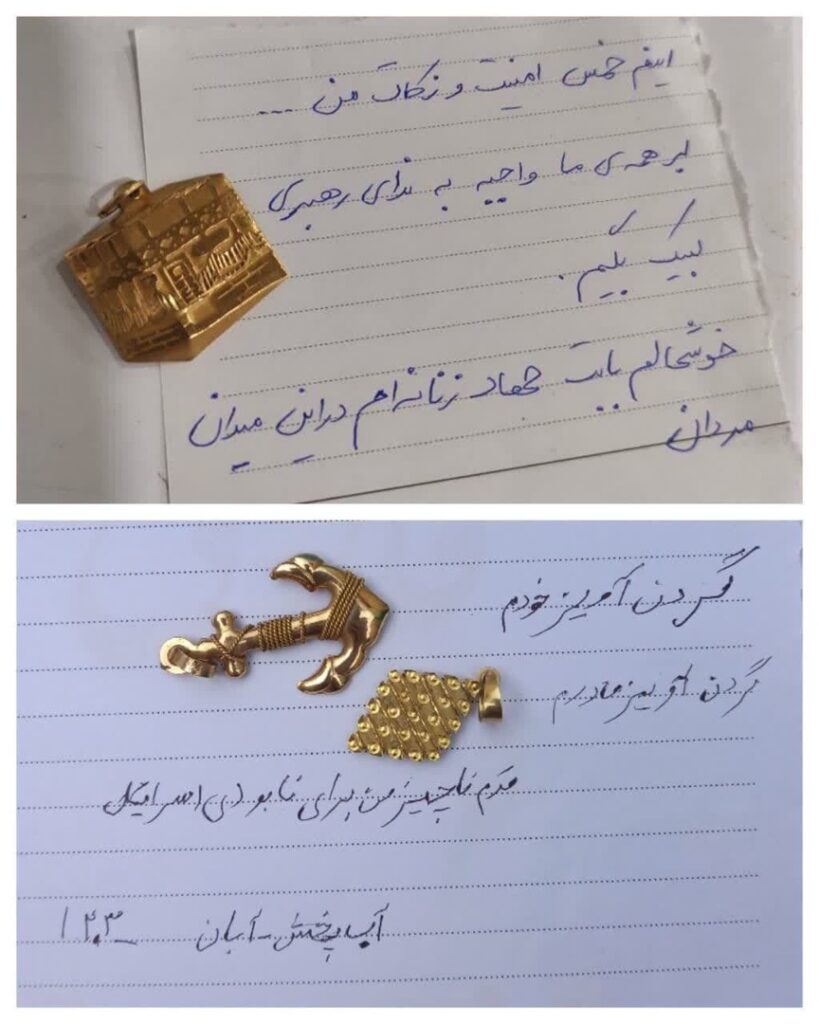 اینم خمس امنیت و زکات من ...
بر همه‌ی ما واجبه به ندای رهبری
لبیک بگیم.
خوشحالم بابت جهاد زنانه‌ام در این میدان
مردان
گردن آویز خودم
گردن آویز مادرم
قدم ناچیز من برای نابودی اسرائیل
آب پخش - آبان ۱۴۰۳